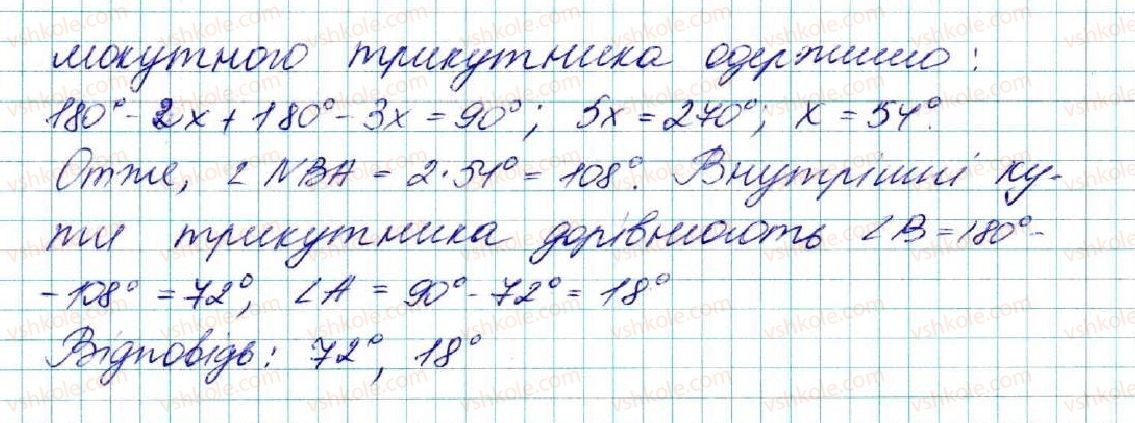 мокутного трикутника одержимо:
180° - 2x + 180° - 3x = 90°; 5x = 270°; x = 54°.
Отже, ∠NBA = 2·54° = 108°. Внутрішні ку-
ти трикутника дорівнюють ∠B = 180° -
- 108° = 72°, ∠A = 90° - 72° = 18°
Відповідь: 72°, 18°